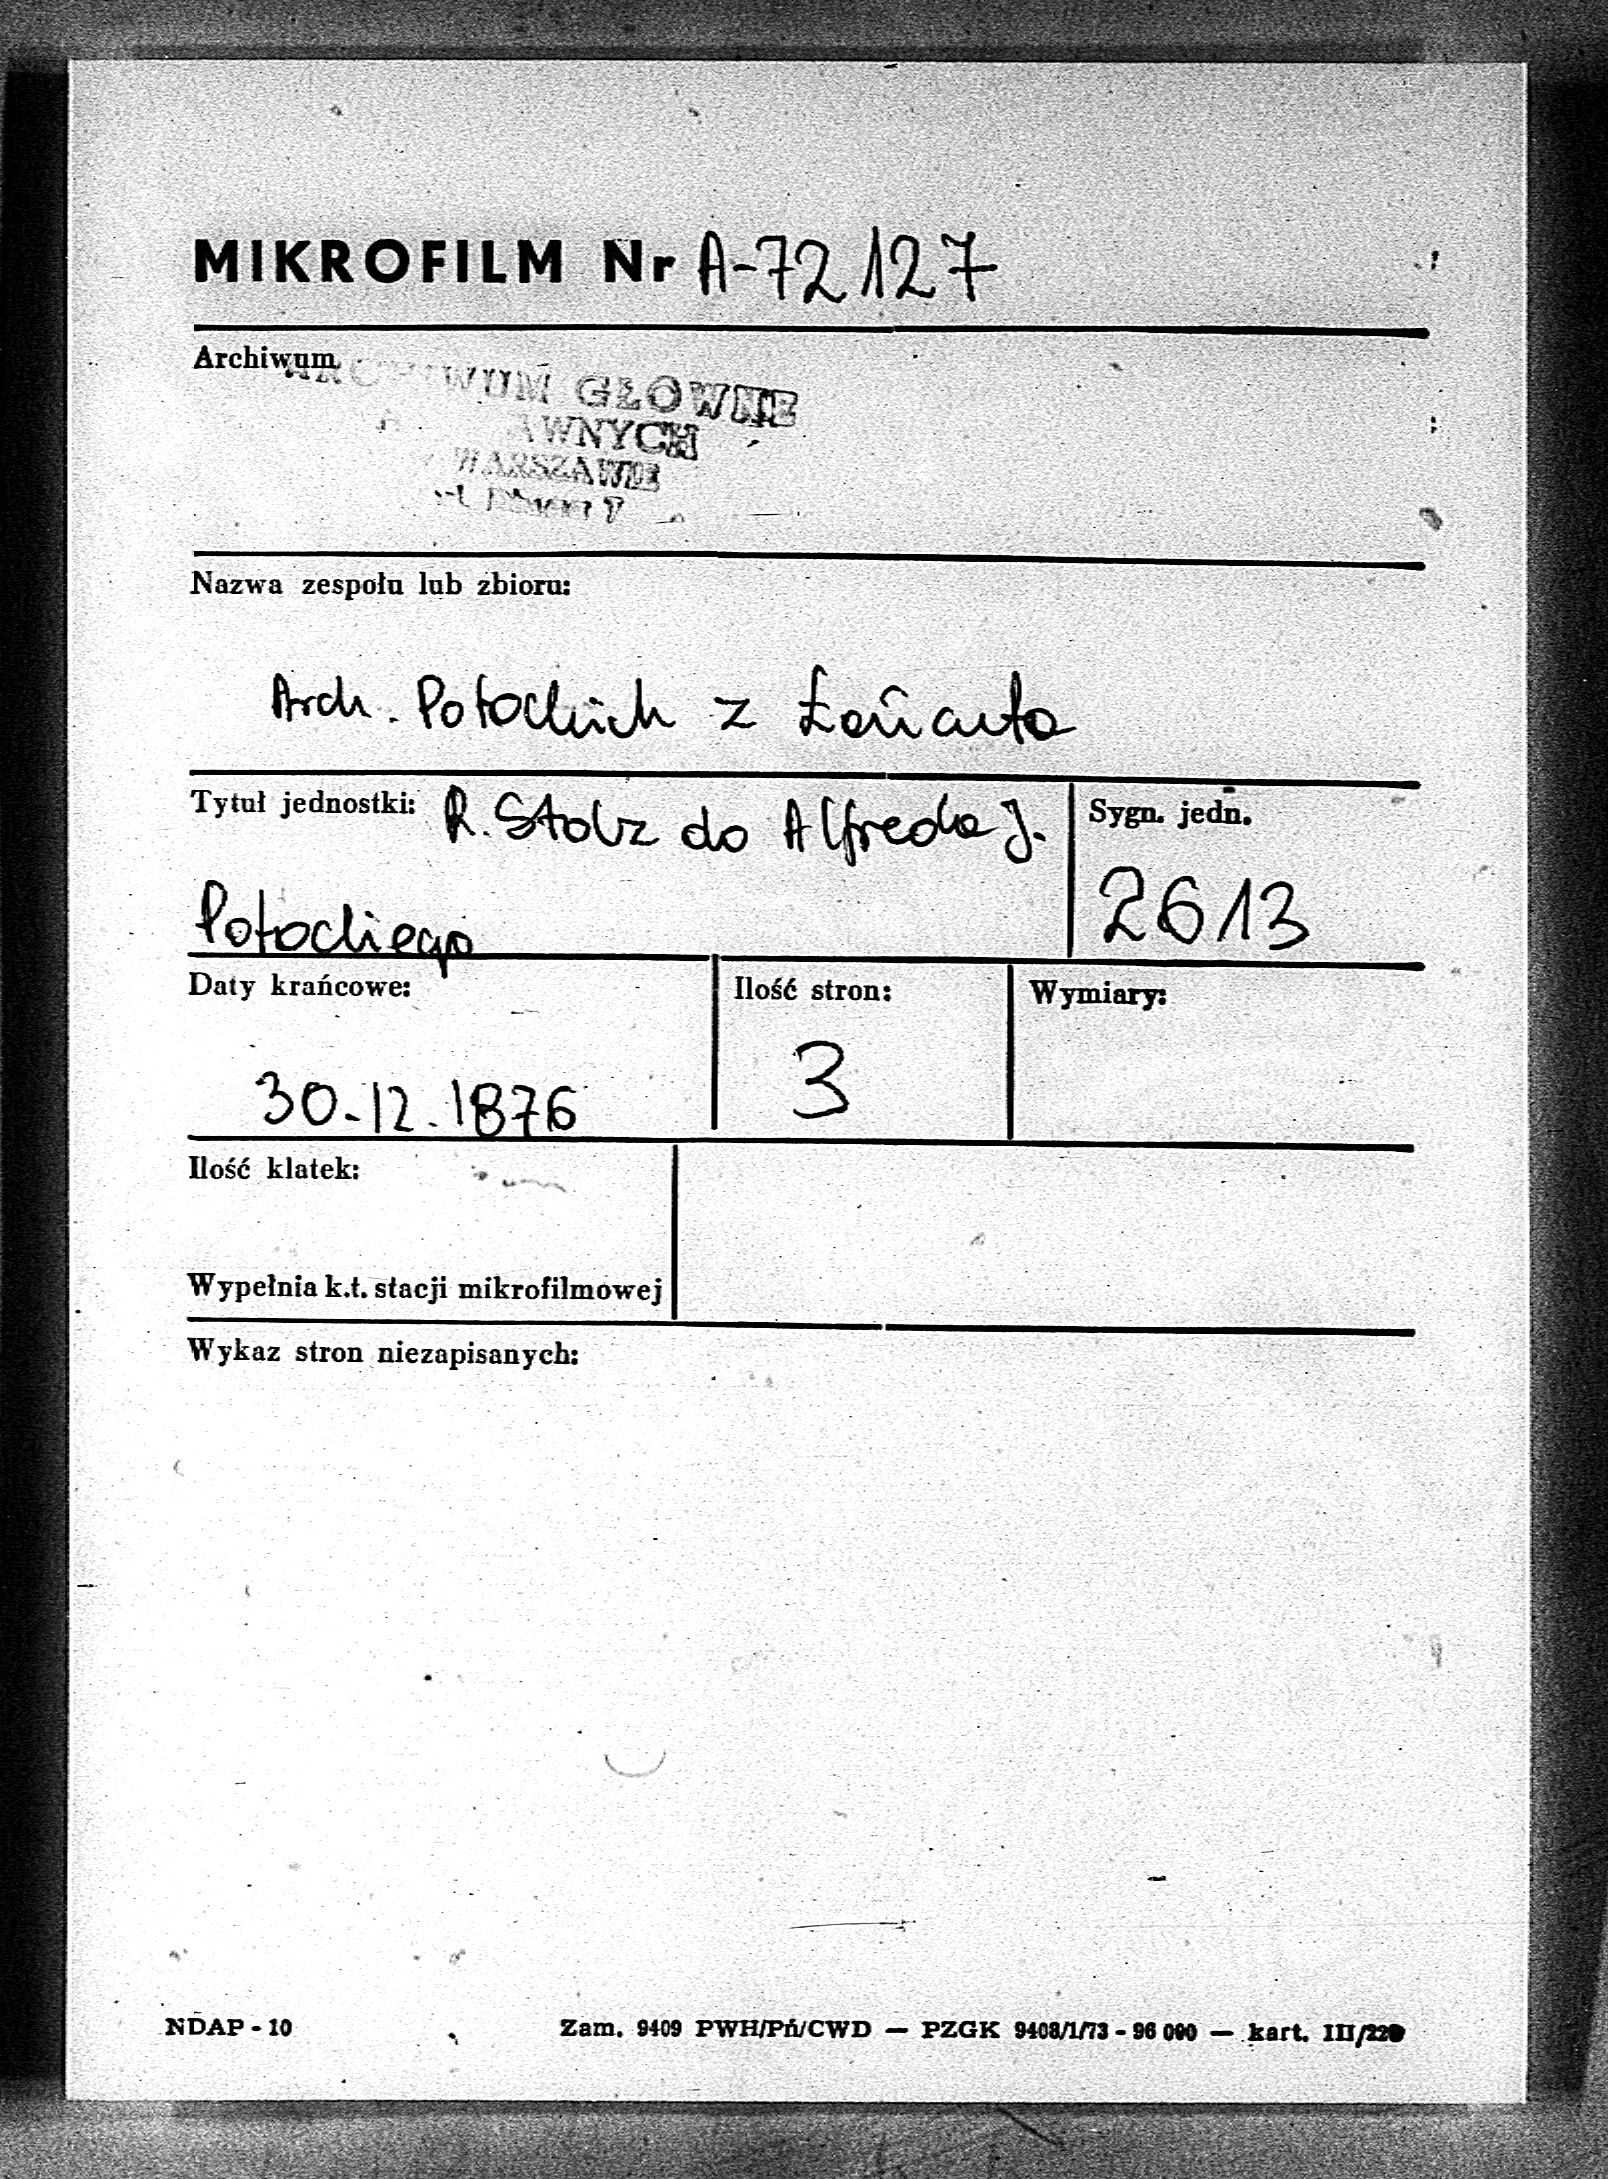 MIKROFILM Nr A-72127
Archiwum
ARCHIWUM GŁÓWNE
WNYCH
WARSZAWIE
Nazwa zespołu lub zbioru:
Arch. Potockich z Łańcuta
Tytuł jednostki: R. Stolz do Alfreda J.
Potockiego
Sygn. jedn.
2613
Daty krańcowe:
30-12.1876
Ilość stron:
3
Wymiary:
Ilość klatek:
Wypełnia k.t. stacji mikrofilmowej
Wykaz stron niezapisanych:
NDAP - 10
Zam. 9409 PWH/Pń/CWD — PZGK 9408/1/73 - 96 000 — kart. III/220